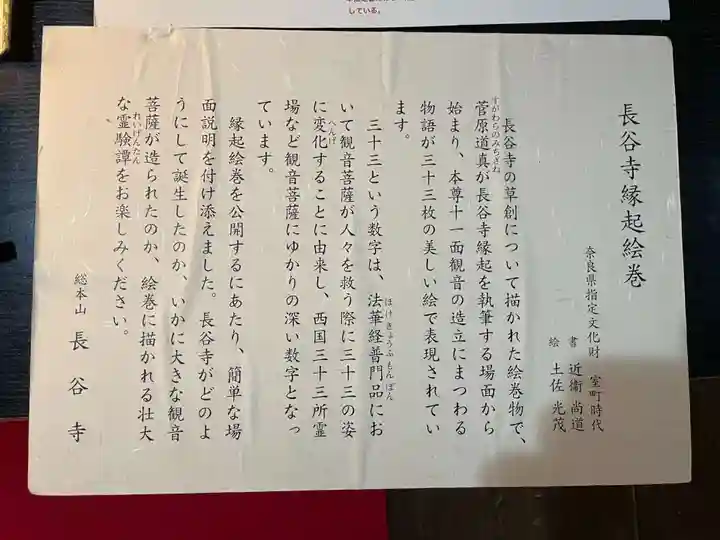 している。
長谷寺縁起絵巻
奈良県指定文化財 室町時代
書 近衞尚道
絵 土佐光茂
長谷寺の草創について描かれた絵巻物で、
菅原道真が長谷寺縁起を執筆する場面から
すがわらのみちざね
始まり、本尊十一面観音の造立にまつわる
物語が三十三枚の美しい絵で表現されてい
ます。
三十三という数字は、法華経普門品にお
ほけきょうふもんぼん
いて観音菩薩が人々を救う際に三十三の姿
に変化することに由来し、西国三十三所霊
へんげ
場など観音菩薩にゆかりの深い数字となっ
ています。
縁起絵巻を公開するにあたり、簡単な場
面説明を付け添えました。長谷寺がどのよ
うにして誕生したのか、いかに大きな観音
菩薩が造られたのか、絵巻に描かれる壮大
な霊験譚をお楽しみください。
れいげんたん
総本山 長谷寺